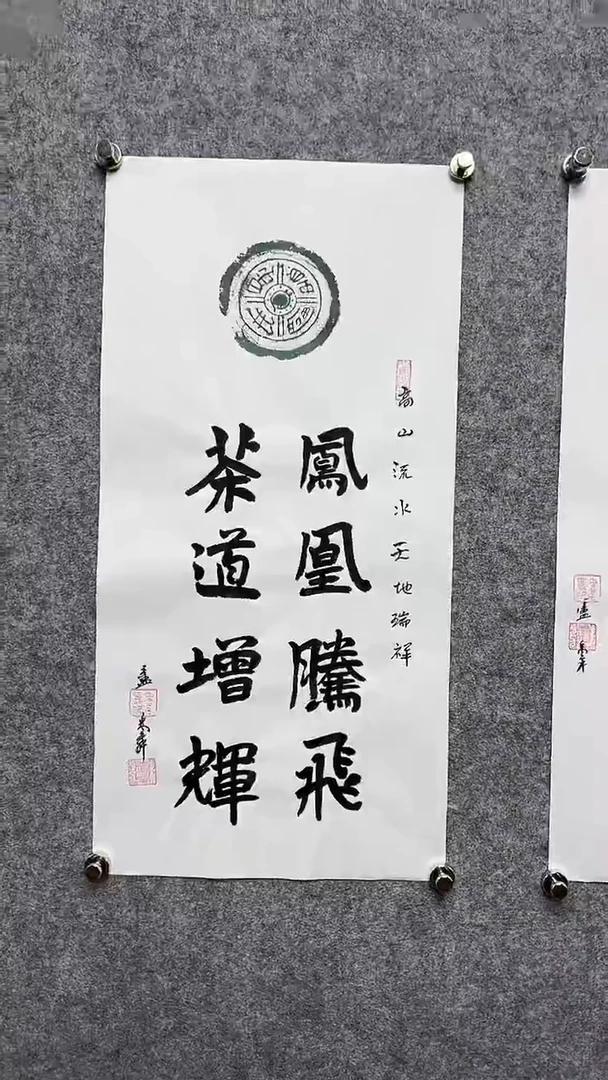 高山流水天地瑞祥
鳳凰騰飛
茶道增輝